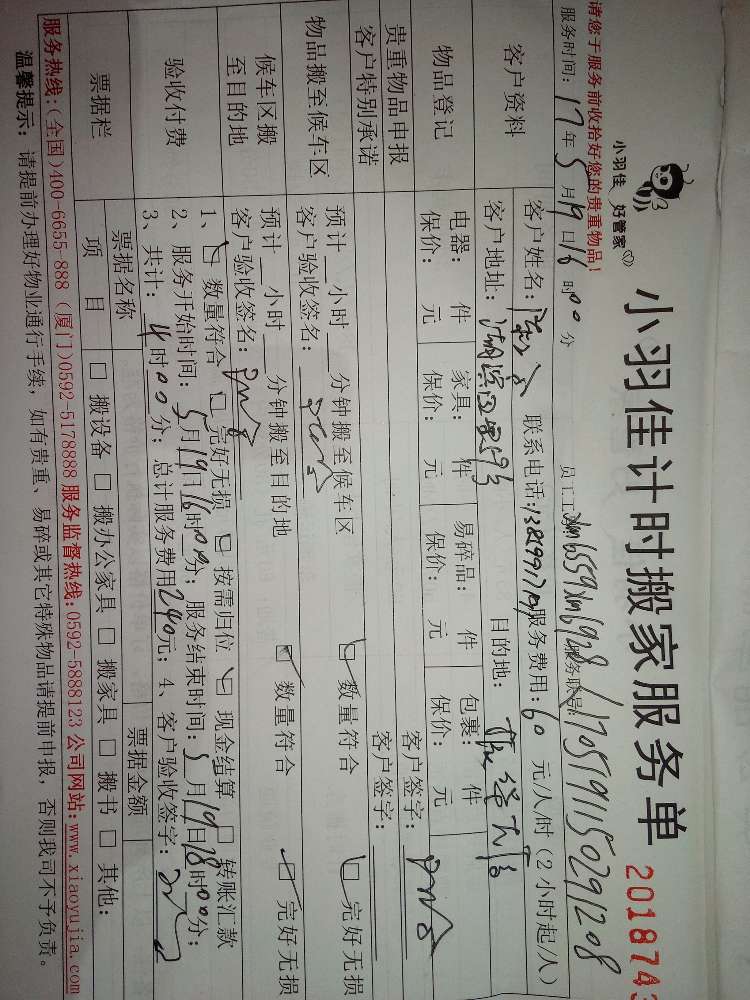 小羽佳 好管家
小羽佳计时搬家服务单
2018743
请您于服务前收拾好您的贵重物品！
服务时间：17年5月19日16时00分 员工工 xm6559 xm6928
客户资料
客户姓名： 联系电话： 服务费用：60元/人/时（2小时起/人）
客户地址： 目的地：
物品登记
电器： 件 家具： 件 易碎品： 件 包裹： 件
保价： 元 保价： 元 保价： 元 保价： 元
贵重物品申报 客户签字：
客户特别承诺 客户签字：
物品搬至候车区
预计 小时 分钟搬至候车区 数量符合 完好无损
客户验收签名：
候车区搬至目的地
预计 小时 分钟搬至目的地 数量符合 完好无损
客户验收签名：
验收付费
1、 数量符合 完好无损 按需归位 现金结算 转账汇款
2、服务开始时间：5月19日16时00分；服务结束时间：5月19日18时00分；
3、共计：4时00分；总计服务费用240元；4、客户验收签字：
票据栏
票据名称 票据金额
项目 □ 搬设备 □ 搬办公家具 □ 搬家具 □ 搬书 □ 其他：
服务热线：(全国)400-6655-888 (厦门)0592-5178888 服务监督热线：0592-5888123 公司网站：www.xiaoyujia.com
温馨提示：请提前办理好物业通行手续，如有贵重、易碎或其它特殊物品请提前申报，否则我司不予负责。